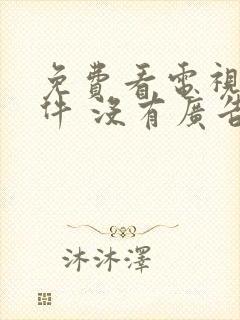 免費看電視
件 沒有廣告
沐沐澤